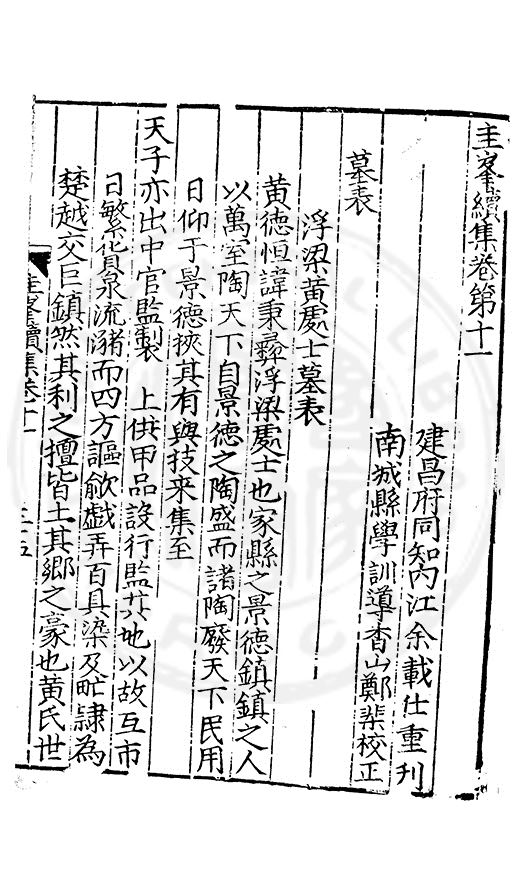 圭峯續集卷第十一
建昌府同知內江余載仕重刋
南城縣學訓導香山鄭棐校正
墓表
浮梁黃處士墓表
黃德恒諱秉彝浮梁處士也家縣之景德鎮鎮之人
以萬室陶天下自景德之陶盛而諸陶廢天下民用
日仰于景德挾其有與技来集至
天子亦出中官監製 上供甲品設行監其地以故互市
日繁貨泉流瀦而四方謳歈戯弄百具染及甿隷為
楚越交巨鎮然其利之擅皆土其鄉之豪也黃氏世
圭峯續集卷十一